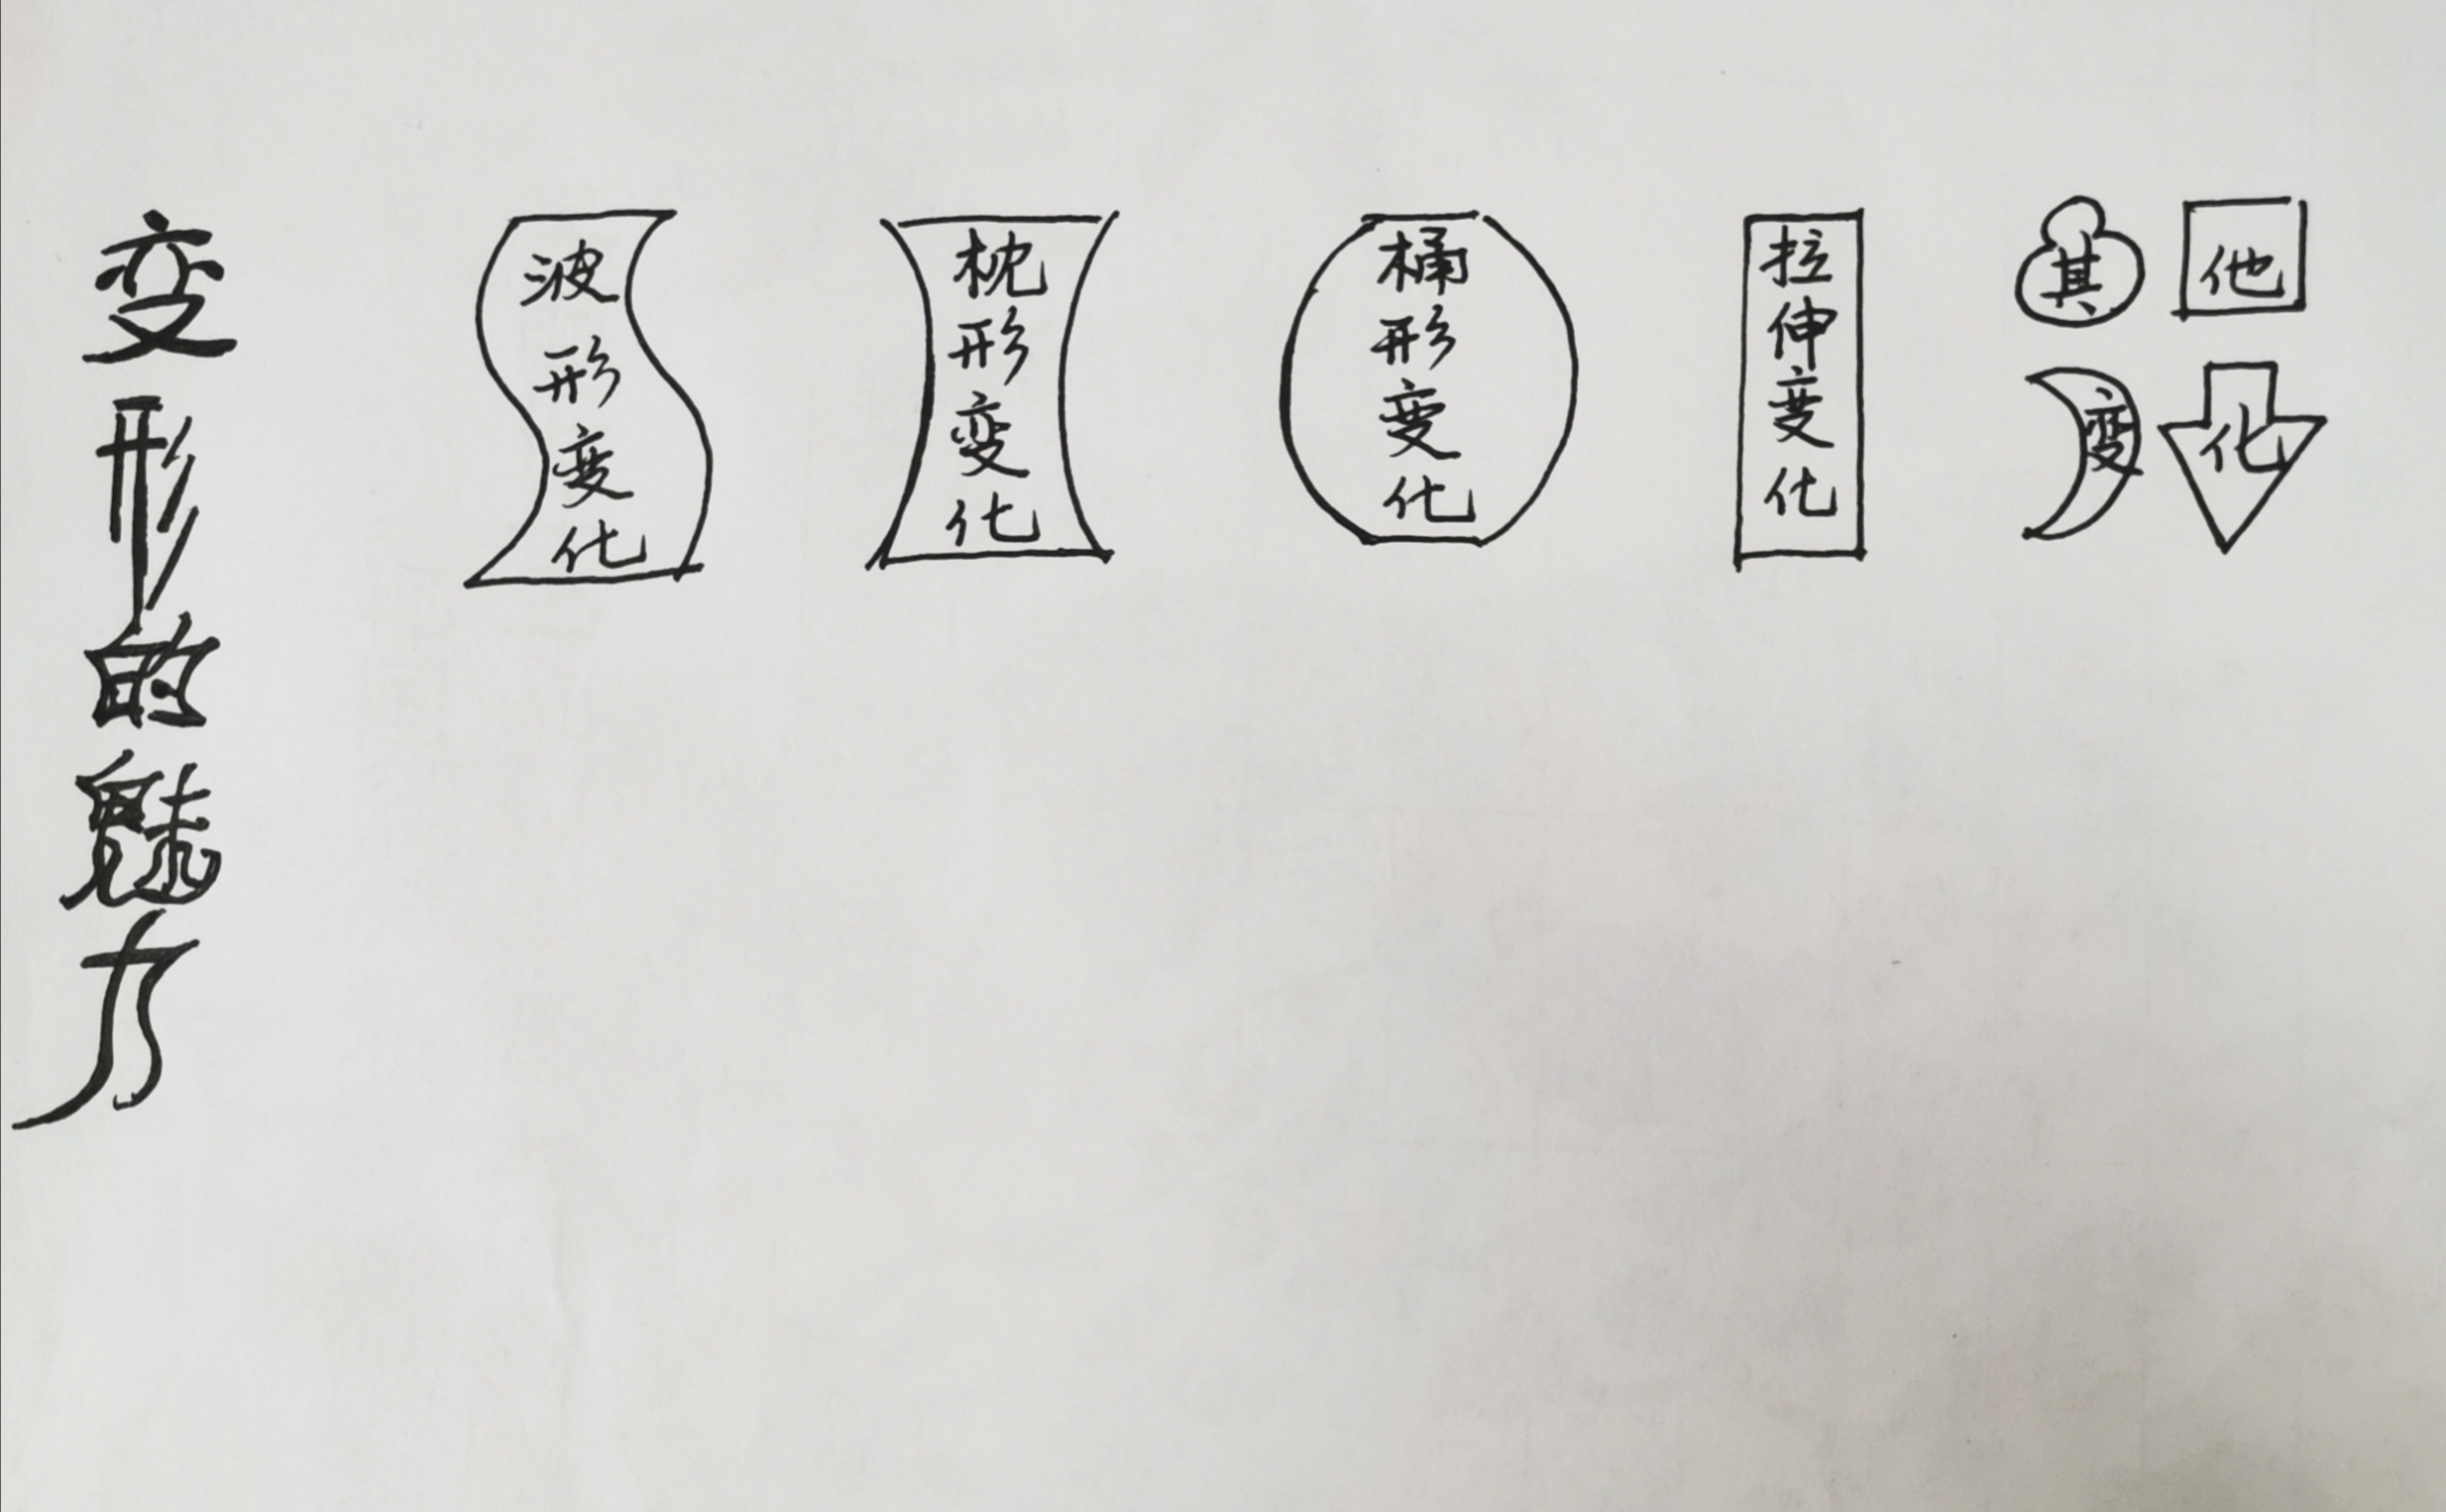 变形的魅力
波形变化
枕形变化
桶形变化
拉伸变化
其他
变化